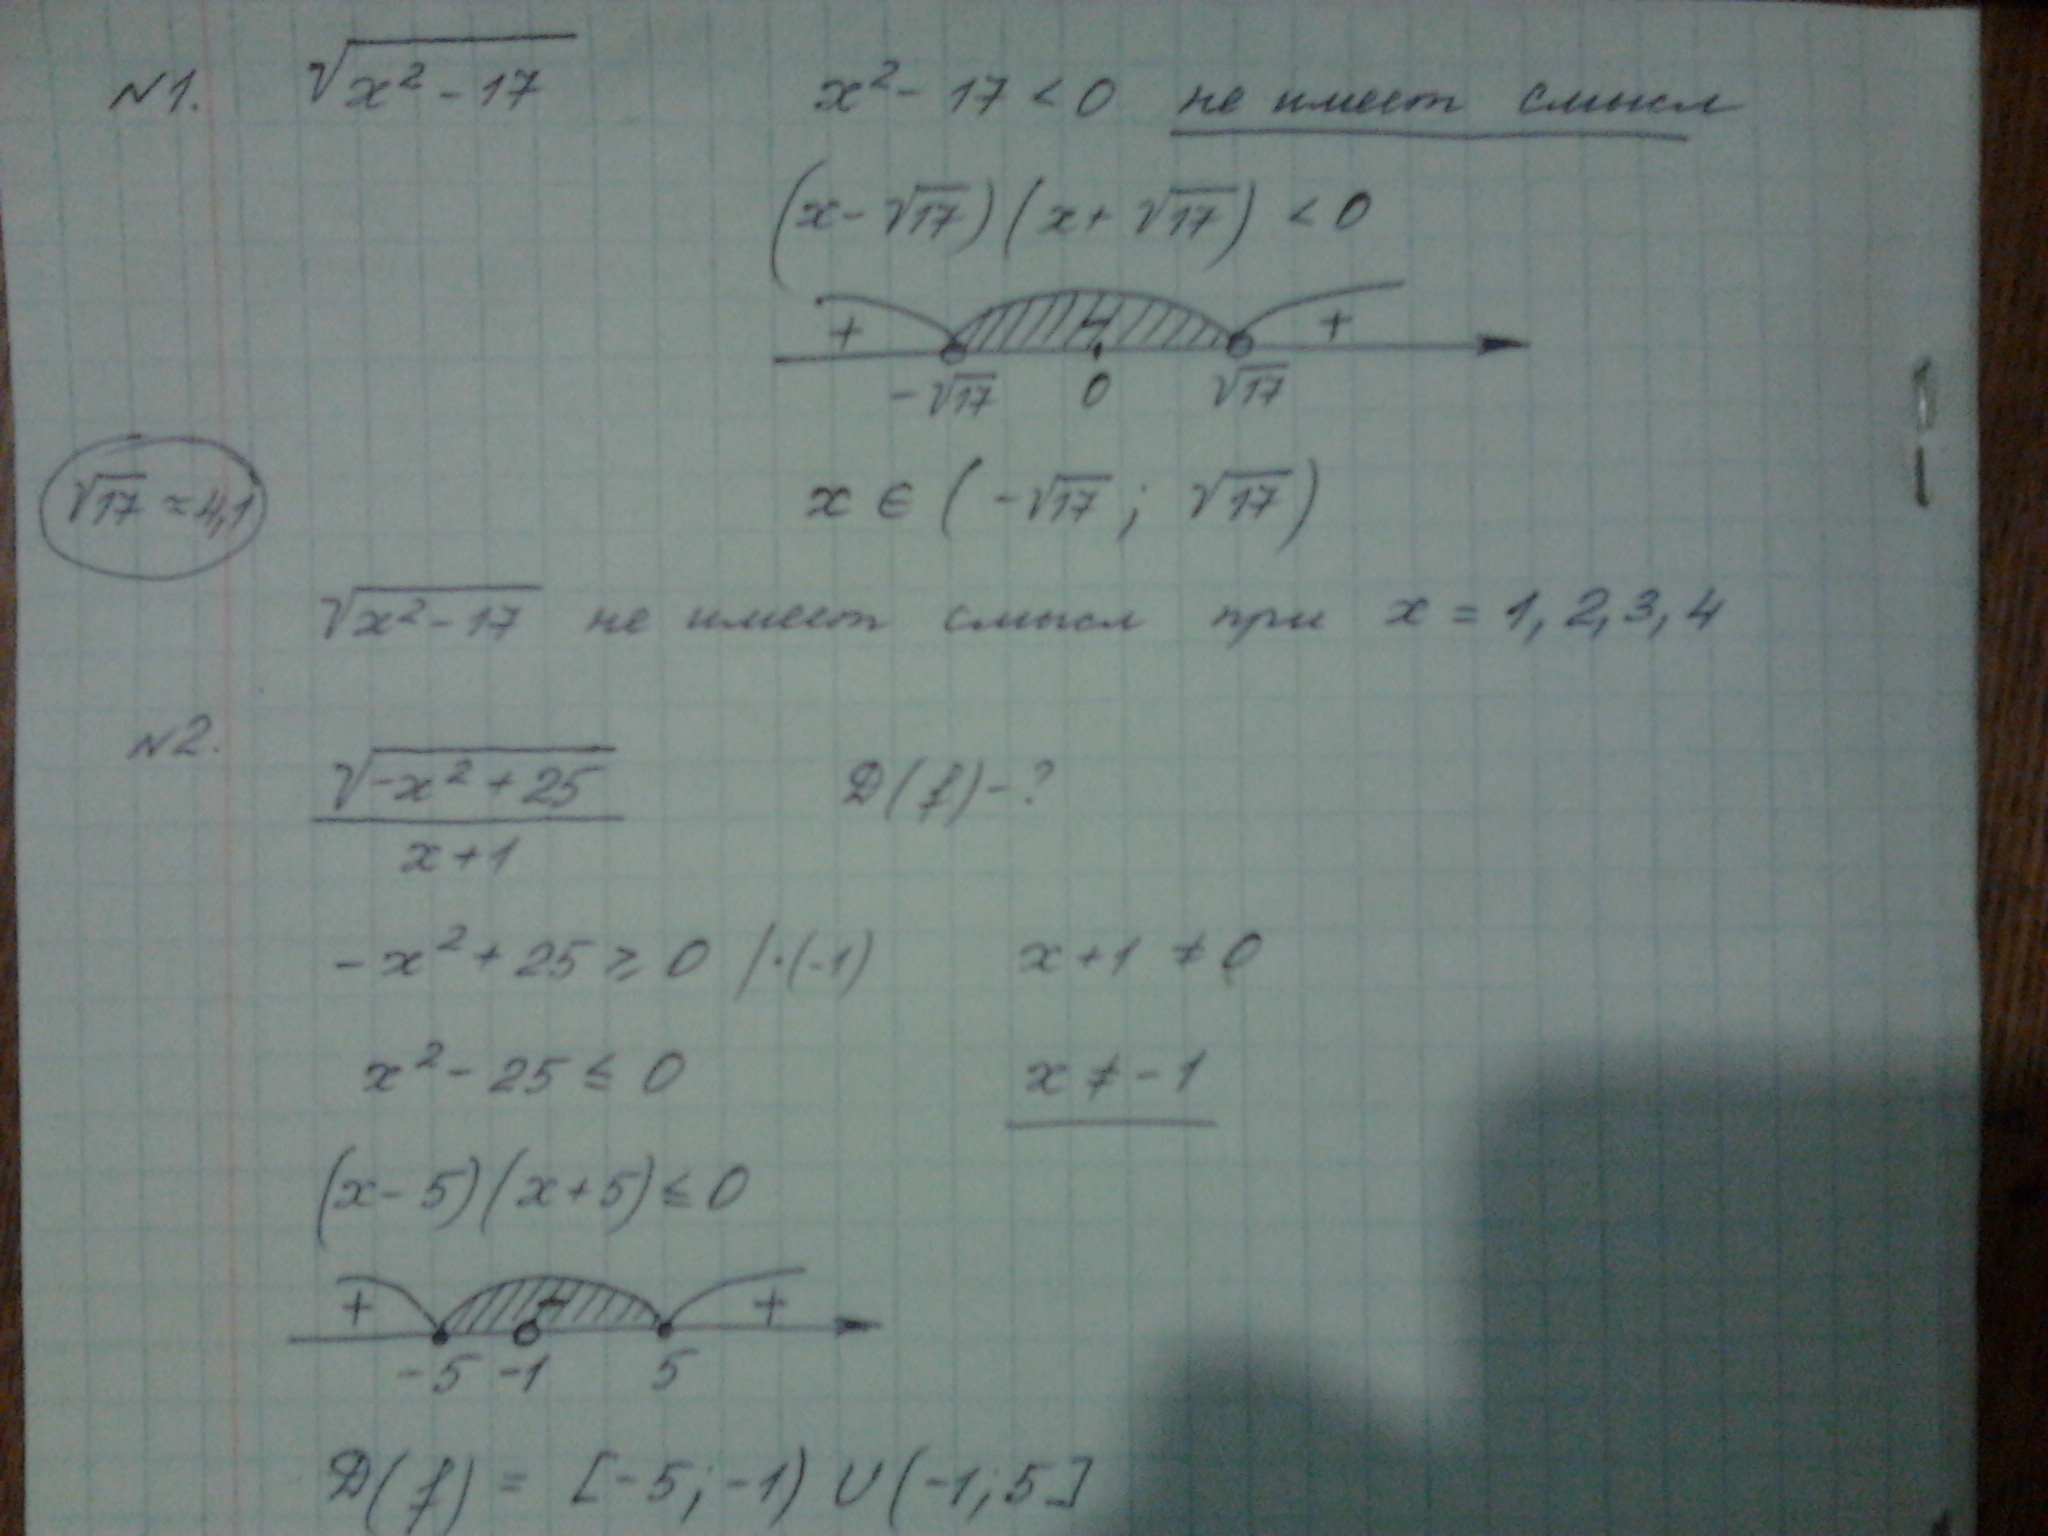 №1. √(x² - 17) x² - 17 < 0 не имеет смысл
(x - √17)(x + √17) < 0
+ - +
-√17 0 √17
√17 ≈ 4,1 x ∈ (-√17; √17)
√(x² - 17) не имеет смысл при x = 1, 2, 3, 4
№2.
√(-x² + 25) / (x + 1) D(f) - ?
-x² + 25 ≥ 0 /·(-1) x + 1 ≠ 0
x² - 25 ≤ 0 x ≠ -1
(x - 5)(x + 5) ≤ 0
+ - +
-5 -1 5
D(f) = [-5; -1) ∪ (-1; 5]